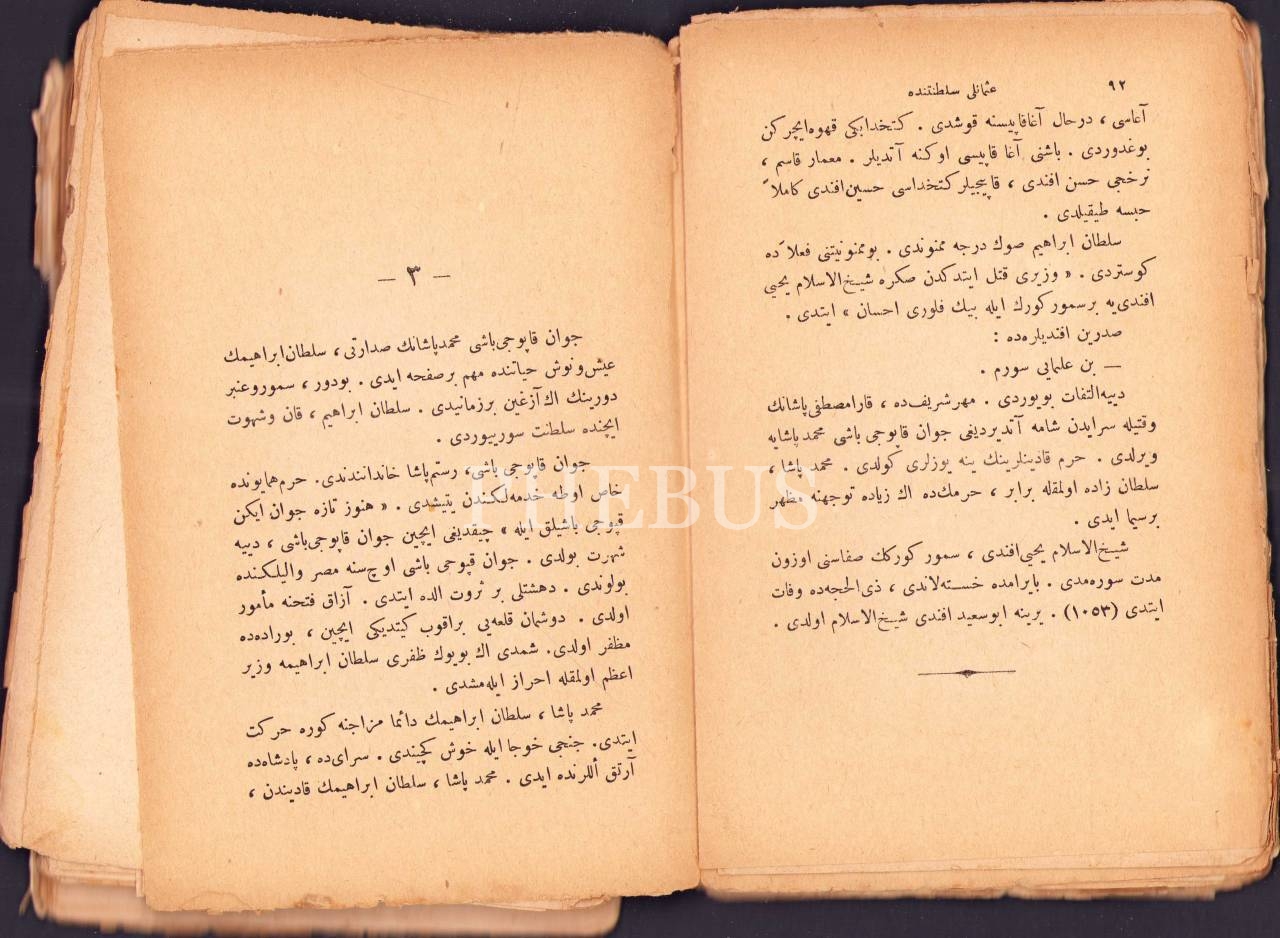 ٩٢
عثمانلی سلطنتنده
آغاسی ، درحال آغاقاپیسنه قوشدی . كتخدابكی قهوه‌ایچركن
بوغدوردی . باشنی آغا قاپیسی اوكنه آتدیلر . معمار قاسم ،
نرخجی حسن افندی ، قاپیجیلر كتخداسی حسین‌افندی كاملاً
حبسه طیقیلدی .
سلطان ابراهیم صوك درجه ممنوندی . بوممنونیتنی فعلاً ده
كوستردی . « وزیری قتل ایتدكدن صكره شیخ‌الاسلام یحیی
افندی‌یه برسموركورك ایله بیك فلوری احسان » ایتدی .
صدرین افندیلره‌ده :
— بن علمایی سورم .
دییه‌التفات بویوردی . مهرشریف‌ده ، قارامصطفی‌پاشانك
وقتیله سرایدن شامه آتدیردیغی جوان قاپوجی باشی محمدپاشایه
ویرلدی . حرم قادینلرینك ینه یوزلری كولدی . محمد پاشا ،
سلطان زاده اولمقله برابر ، حرمك‌ده اك زیاده توجهنه مظهر
برسیما ایدی .
شیخ‌الاسلام یحیی‌افندی ، سمور كوركك صفاسنی اوزون
مدت سوره‌مدی . بایرامده خسته‌لاندی ، ذی‌الحجه‌ده وفات
ایتدی (١٠٥٣) . یرینه ابوسعید افندی شیخ‌الاسلام اولدی .
— ٣ —
جوان قاپوجی‌باشی محمدپاشانك صدارتی ، سلطان‌ابراهیمك
عیش‌ونوش حیاتنده مهم برصفحه ایدی . بودور ، سموروعنبر
دورینك اك‌آزغین برزمانیدی . سلطان ابراهیم ، قان وشهوت
ایچنده سلطنت سورییوردی .
جوان قاپوجی باشی ، رستم‌پاشا خاندانندندی. حرم همایونده
خاص اوطه خدمه‌لكندن یتیشدی . « هنوز تازه جوان ایكن
قپوجی باشیلق ایله » چیقدیغی ایچین جوان قاپوجی‌باشی ، دییه
شهرت بولدی . جوان قپوجی باشی اوچ‌سنه مصر والیلكنده
بولوندی . دهشتلی بر ثروت الده ایتدی . آزاق فتحنه مأمور
اولدی . دوشمان قلعه‌یی براقوب كیتدیكی ایچین ، بوراده‌ده
مظفر اولدی. شمدی اك بویوك ظفری سلطان ابراهیمه وزیر
اعظم اولمقله احراز ایله‌مشدی .
محمد پاشا ، سلطان ابراهیمك دائما مزاجنه كوره حركت
ایتدی. جنجی خوجا ایله خوش كچیندی . سرای‌ده ، پادشاه‌ده
آرتق اللرنده ایدی . محمد پاشا ، سلطان ابراهیمك قادیندن ،
PHEBUS